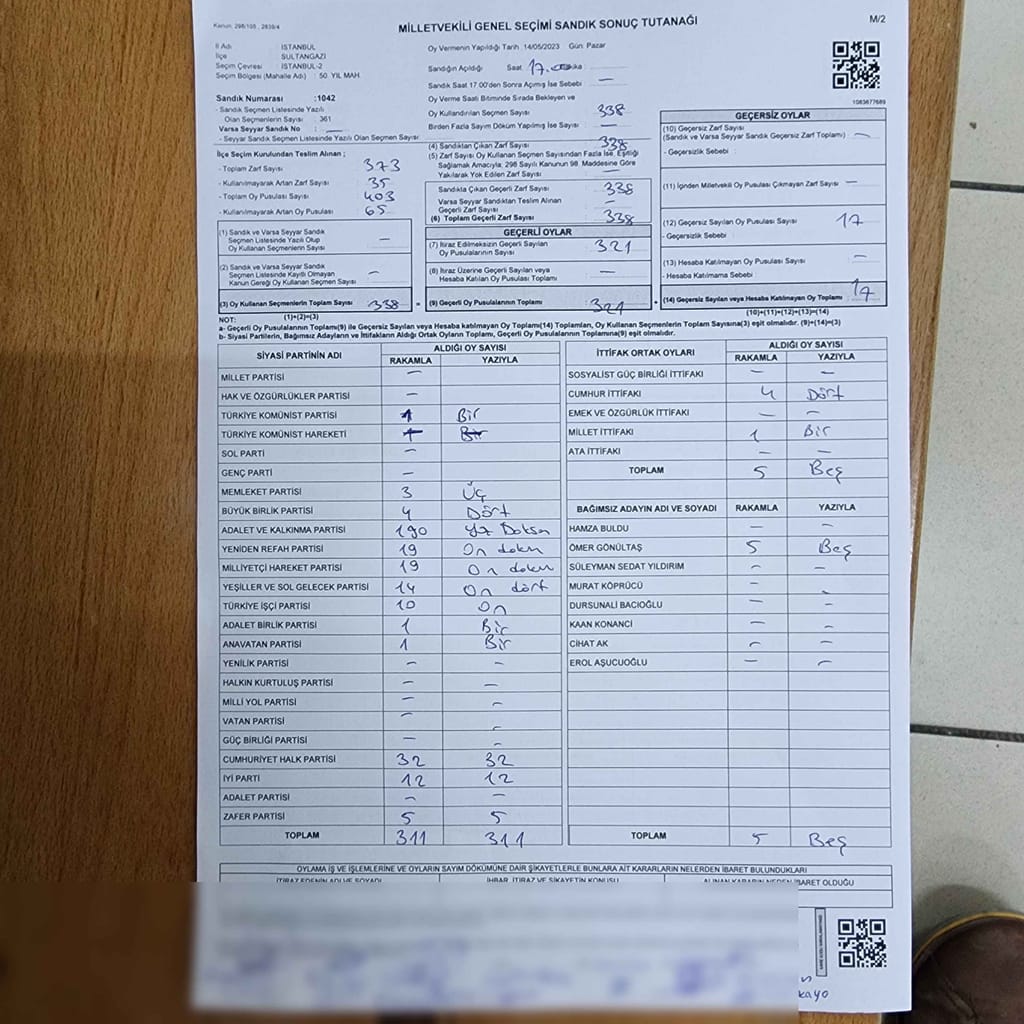 Kanun: 298/105 , 2839/4
MİLLETVEKİLİ GENEL SEÇİMİ SANDIK SONUÇ TUTANAĞI
M/2
İl Adı : İSTANBUL
İlçe : SULTANGAZİ
Seçim Çevresi : İSTANBUL-2
Seçim Bölgesi (Mahalle Adı) : 50. YIL MAH.
Sandık Numarası :1042
- Sandık Seçmen Listesinde Yazılı
Olan Seçmenlerin Sayısı : 361
Varsa Seyyar Sandık No :
- Seyyar Sandık Seçmen Listesinde Yazılı Olan Seçmen Sayısı:
İlçe Seçim Kurulundan Teslim Alınan ;
- Toplam Zarf Sayısı 373
- Kullanılmayarak Artan Zarf Sayısı 35
- Toplam Oy Pusulası 403
- Kullanılmayarak Artan Oy Pusulası 65
(1) Sandık ve Varsa Seyyar Sandık
Seçmen Listesinde Yazılı Olup
Oy Kullanan Seçmenlerin Sayısı —
(2) Sandık ve Varsa Seyyar Sandık
Seçmen Listesinde Kayıtlı Olmayan
Kanun Gereği Oy Kullanan Seçmen Sayısı —
(3) Oy Kullanan Seçmenlerin Toplam Sayısı 338
(1)+(2)=(3)
Oy Vermenin Yapıldığı Tarih :14/05/2023 Gün: Pazar
Sandığın Açıldığı Saat 17
Sandık Saat 17:00'den Sonra Açmış İse Sebebi —
Oy Verme Saati Bitiminde Sırada Bekleyen ve
Oy Kullandırılan Seçmen Sayısı 338
Birden Fazla Sayım Döküm Yapılmış İse Sayısı —
(4) Sandıktan Çıkan Zarf Sayısı 338
(5) Zarf Sayısı Oy Kullanan Seçmen Sayısından Fazla İse, Eşitliği
Sağlamak Amacıyla; 298 Sayılı Kanunun 98. Maddesine Göre
Yakılarak Yok Edilen Zarf Sayısı —
Sandıkta Çıkan Geçerli Zarf Sayısı 338
Varsa Seyyar Sandıktan Teslim Alınan
Geçerli Zarf Sayısı —
(6) Toplam Geçerli Zarf Sayısı 338
GEÇERLİ OYLAR
(7) İtiraz Edilmeksizin Geçerli Sayılan
Oy Pusulalarının Sayısı 321
(8) İtiraz Üzerine Geçerli Sayılan veya
Hesaba Katılan Oy Pusulası Toplamı —
(9) Geçerli Oy Pusulalarının Toplamı 321
1083677689
GEÇERSİZ OYLAR
(10) Geçersiz Zarf Sayısı
(Sandık ve Varsa Seyyar Sandık Geçersiz Zarf Toplamı) —
- Geçersizlik Sebebi :
(11) İçinden Milletvekili Oy Pusulası Çıkmayan Zarf Sayısı —
(12) Geçersiz Sayılan Oy Pusulası Sayısı 17
- Geçersizlik Sebebi :
(13) Hesaba Katılmayan Oy Pusulası Sayısı —
- Hesaba Katılmama Sebebi :
(14) Geçersiz Sayılan veya Hesaba Katılmayan Oy Toplamı 17
(10)+(11)+(12)+(13)=(14)
NOT:
a- Geçerli Oy Pusulalarının Toplamı(9) ile Geçersiz Sayılan veya Hesaba katılmayan Oy Toplam(14) Toplamları, Oy Kullanan Seçmenlerin Toplam Sayısına(3) eşit olmalıdır. (9)+(14)=(3)
b- Siyasi Partilerin, Bağımsız Adayların ve İttifakların Aldığı Ortak Oyların Toplamı, Geçerli Oy Pusulalarının Toplamına(9) eşit olmalıdır.
SİYASİ PARTİNİN ADI ALDIĞI OY SAYISI
RAKAMLA YAZIYLA
MİLLET PARTİSİ —
HAK VE ÖZGÜRLÜKLER PARTİSİ —
TÜRKİYE KOMÜNİST PARTİSİ 1 Bir
TÜRKİYE KOMÜNİST HAREKETİ 1 Bir
SOL PARTİ —
GENÇ PARTİ —
MEMLEKET PARTİSİ 3 Üç
BÜYÜK BİRLİK PARTİSİ 4 Dört
ADALET VE KALKINMA PARTİSİ 190
YENİDEN REFAH PARTİSİ 19 On
MİLLİYETÇİ HAREKET PARTİSİ 19 On
YEŞİLLER VE SOL GELECEK PARTİSİ 14 On dört
TÜRKİYE İŞÇİ PARTİSİ 10 On
ADALET BİRLİK PARTİSİ 1 Bir
ANAVATAN PARTİSİ 1 Bir
YENİLİK PARTİSİ — —
HALKIN KURTULUŞ PARTİSİ — —
MİLLİ YOL PARTİSİ — —
VATAN PARTİSİ — —
GÜÇ BİRLİĞİ PARTİSİ — —
CUMHURİYET HALK PARTİSİ 32 32
İYİ PARTİ 12 12
ADALET PARTİSİ — —
ZAFER PARTİSİ 5 5
TOPLAM 311 311
İTTİFAK ORTAK OYLARI ALDIĞI OY SAYISI
RAKAMLA YAZIYLA
SOSYALİST GÜÇ BİRLİĞİ İTTİFAKI — —
CUMHUR İTTİFAKI 4 Dört
EMEK VE ÖZGÜRLÜK İTTİFAKI — —
MİLLET İTTİFAKI 1 Bir
ATA İTTİFAKI — —
TOPLAM 5 Beş
BAĞIMSIZ ADAYIN ADI VE SOYADI RAKAMLA YAZIYLA
HAMZA BULDU — —
ÖMER GÖNÜLTAŞ 5 Beş
SÜLEYMAN SEDAT YILDIRIM — —
MURAT KÖPRÜCÜ — —
DURSUNALİ BACIOĞLU — —
KAAN KONANCİ — —
CİHAT AK — —
EROL AŞUCUOĞLU — —
TOPLAM 5 Beş
OYLAMA İŞ VE İŞLEMLERİNE VE OYLARIN SAYIM DÖKÜMÜNE DAİR ŞİKAYETLERLE BUNLARA AİT KARARLARIN NELERDEN İBARET BULUNDUKLARI
İTİRAZ EDENİN ADI VE SOYADI İHBAR, İTİRAZ VE ŞİKAYETİN KONUSU ALINAN KARARIN NEDEN İBARET OLDUĞU